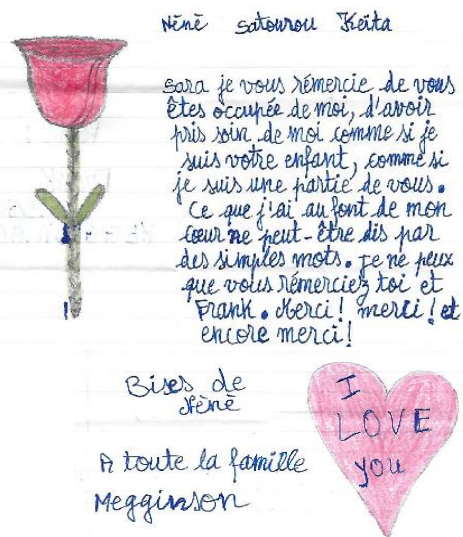 Nènè Satourou Keïta
Sara je vous rémercie de vous
êtes occupée de moi, d'avoir
pris soin de moi comme si je
suis votre enfant, comme si
je suis une partie de vous.
Ce que j'ai au font de mon
cœur ne peut-être dis par
des simples mots. Je ne peux
que vous rémerciez toi et
Frank. Merci! merci! et
encore merci!
Bises de
Nènè
A toute la famille
Megginson
I
LOVE
you